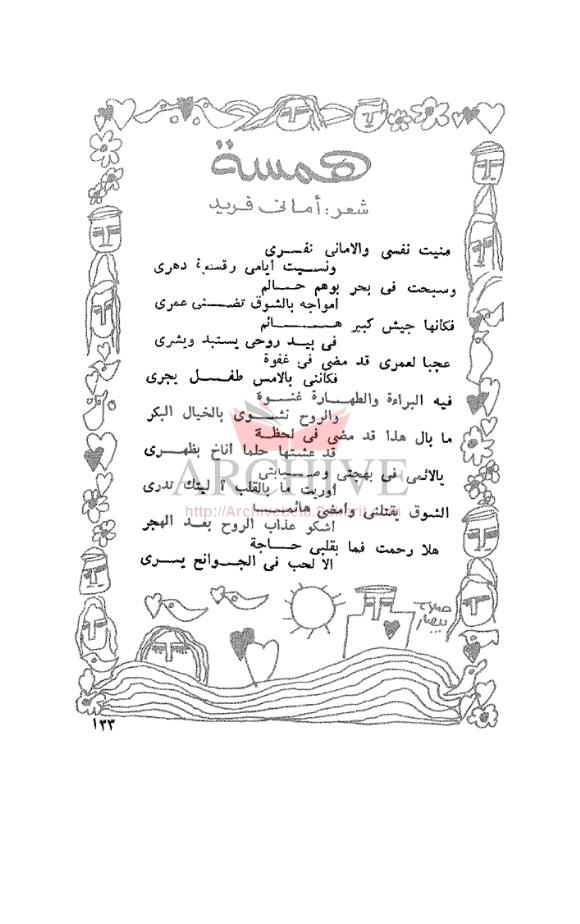 همسة
شعر: أماني فريد
منيت نفسى والامانى تفسرى
ونسيت ايامى وقسوة دهرى
وسبحت فى بحر بوهم حالم
أمواجه بالشوق تضنى عمرى
فكانها جيش كبير هائم
فى بيد روحى يستبد ويشرى
عجبا لعمرى قد مضى فى غفوة
فكاننى بالامس طفل يجرى
فيه البراءة والطهارة غنوة
والروح نشوى بالخيال البكر
ما بال هذا قد مضى فى لحظة
قد عشتها حلما أناخ بظهرى
يالائمى فى بهجتى وصبابتى
أوريت ما بالقلب ؟ ليتك تدرى
الشوق يقتلنى وامضى هائما
اشكو عذاب الروح بعد الهجر
هلا رحمت فما بقلبى حاجة
الا لحب فى الجوانح يسرى
ARCHIVE
صلاح
بيصار
١٣٣